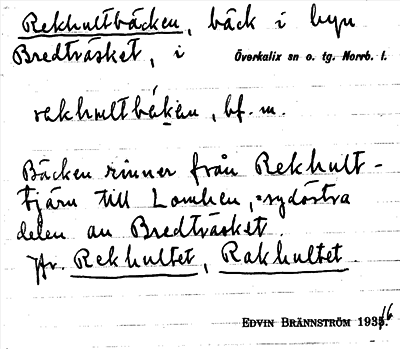 Rekhultbäcken, bäck i byn
Bredträsket, i Överkalix sn o. tg. Norrb. l.
rakhultbäken, bf. m.
Bäcken rinner från Rekhult-
tjärn till Lomben, =sydöstra
delen av Bredträsket.
Jfr. Rekhultet, Rakhultet.
EDVIN BRÄNNSTRÖM 1936.